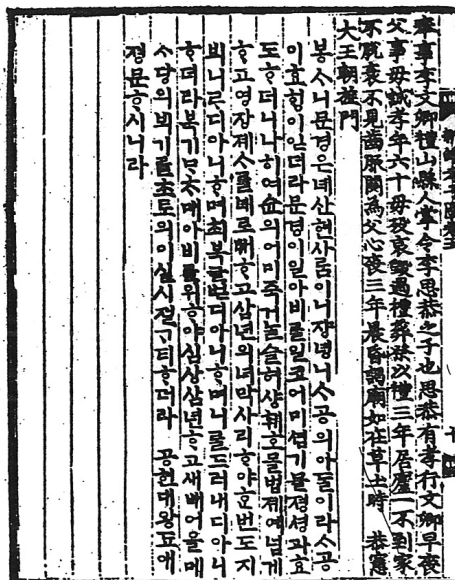 奉事李文卿禮山縣人掌令李思恭之子也思恭有孝行文卿早喪
父事母誠孝年六十母歿哀毀過禮葬祭以禮三年居廬一不到家
不脫衰不見齒服闋為父心喪三年晨昏謁廟如在草土時 恭憲
大王朝旌門
봉ᄉᆞ니문경은녜산현사ᄅᆞᆷ이니쟝녕니ᄉᆞ공의아ᄃᆞᆯ이라ᄉᆞ공
이효ᄒᆡᆼ이읻더라문경이일아비ᄅᆞᆯ일코어미셤기ᄆᆞᆯ졍셩과효
도ᄒᆞ더니나히여슌의어미죽거ᄂᆞᆯ슬허샹훼호ᄆᆞᆯ법졔예넘게
ᄒᆞ고영장졔ᄉᆞᄅᆞᆯ녜로ᄡᅥᄒᆞ고삼년의녀막사리ᄒᆞ야ᄒᆞᆫ번도지
븨니르디아니ᄒᆞ며최복글벋디아니ᄒᆞ며니ᄅᆞᆯ드러내디아니
ᄒᆞ더라복기ᄆᆞᆺ차매아비ᄅᆞᆯ위ᄒᆞ야심상삼년ᄒᆞ고새배어을메
ᄉᆞ당의뵈기ᄅᆞᆯ초토의이실시졀ᄀᆞ티ᄒᆞ더라 공헌대왕됴애
졍문ᄒᆞ시니라